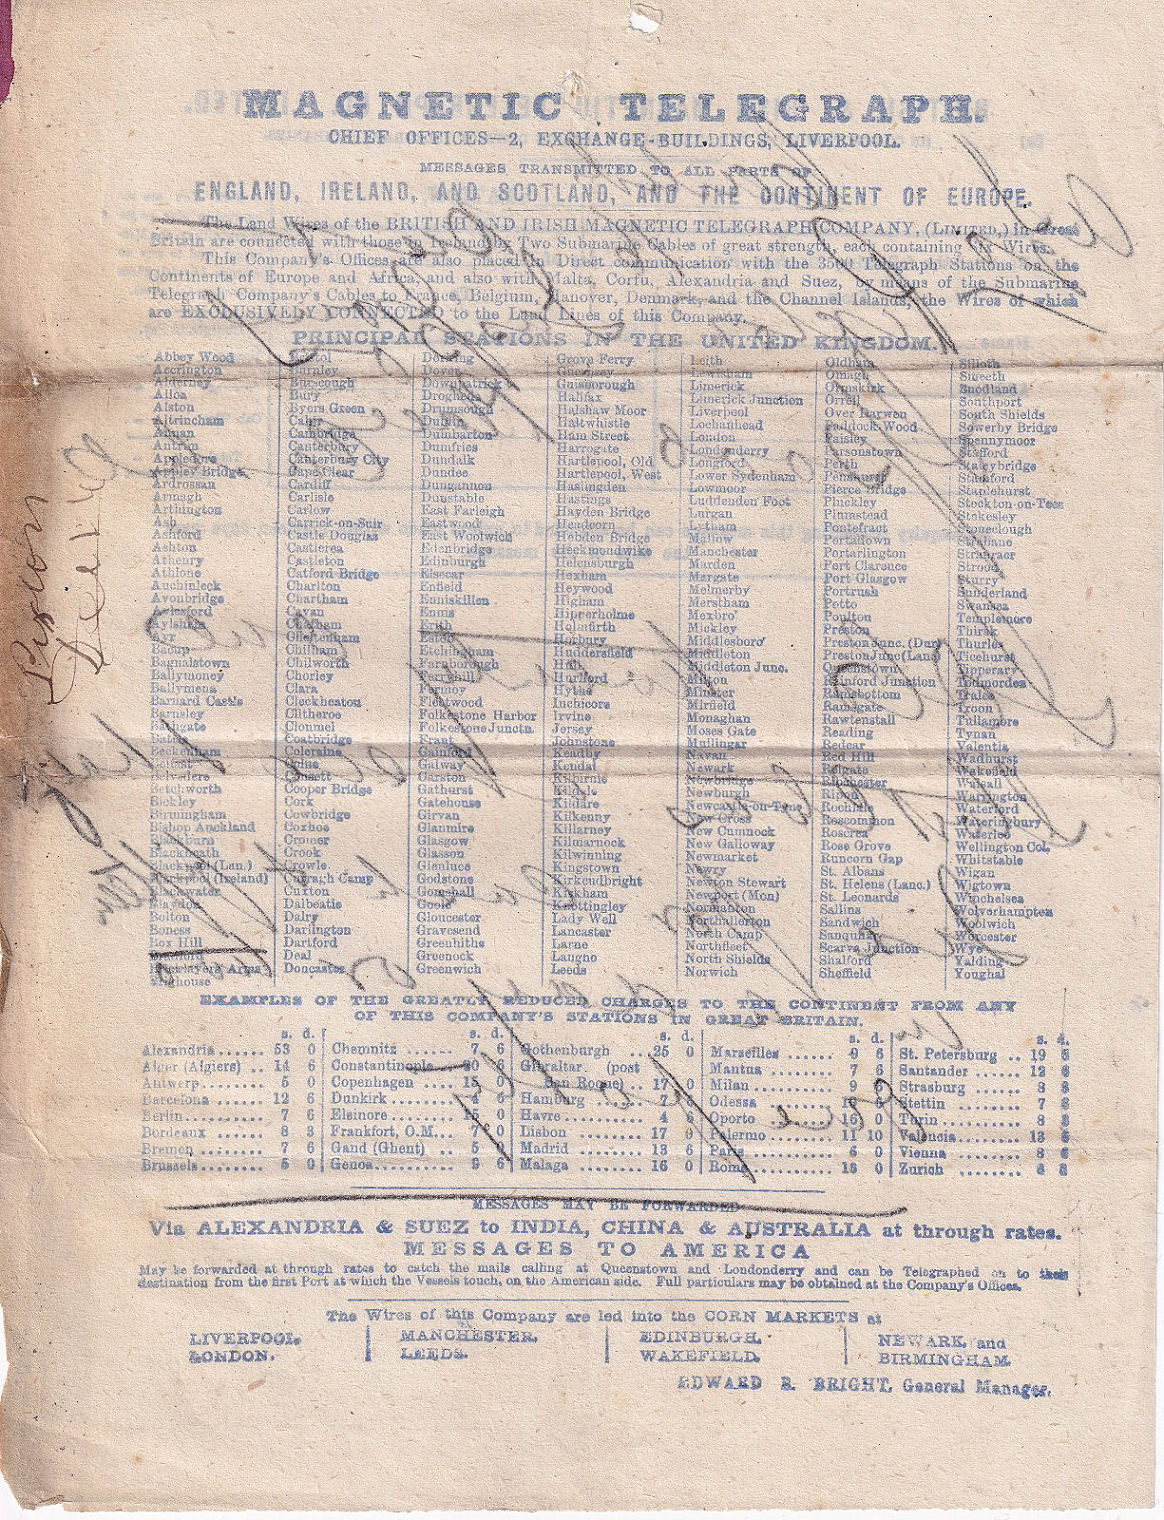 MAGNETIC TELEGRAPH.
CHIEF OFFICES—2, EXCHANGE-BUILDINGS, LIVERPOOL.
MESSAGES TRANSMITTED TO ALL PARTS OF
ENGLAND, IRELAND, AND SCOTLAND, AND THE CONTINENT OF EUROPE.
The Land Wires of the BRITISH AND IRISH MAGNETIC TELEGRAPH COMPANY, (LIMITED,) in Great
Britain are connected with those in Ireland by Two Submarine Cables of great strength, each containing Six Wires.
This Company's Offices are also placed in Direct communication with the 3500 Telegraph Stations on the
Continents of Europe and Africa, and also with Malta, Corfu, Alexandria and Suez, by means of the Submarine
Telegraph Company's Cables to France, Belgium, Hanover, Denmark, and the Channel Islands, the Wires of which
are EXCLUSIVELY CONNECTED to the Land Lines of this Company.
PRINCIPAL STATIONS IN THE UNITED KINGDOM.
Abbey Wood
Accrington
Alderney
Alloa
Alston
Altrincham
Annan
Antrim
Appledore
Appley Bridge
Ardrossan
Armagh
Arthington
Ash
Ashford
Ashton
Athenry
Athlone
Auchinleck
Avonbridge
Aylesford
Aylsham
Ayr
Bacup
Bagnalstown
Ballymoney
Ballymena
Barnard Castle
Barnsley
Bathgate
Battle
Beckenham
Belfast
Belvedere
Betchworth
Bickley
Birmingham
Bishop Auckland
Blackburn
Blackheath
Blackpool (Lan.)
Blackrock (Ireland)
Blackwater
Blaydon
Bolton
Boness
Box Hill
Bradford
Bricklayers Arms
Brighouse
Bristol
Burnley
Burscough
Bury
Byers Green
Cahir
Cambridge
Canterbury
Canterbury City
Cape Clear
Cardiff
Carlisle
Carlow
Carrick-on-Suir
Castle Douglas
Castlerea
Castleton
Catford Bridge
Charlton
Chartham
Cavan
Chatham
Cheltenham
Chilham
Chilworth
Chorley
Clara
Cleckheaton
Clitheroe
Clonmel
Coatbridge
Coleraine
Colne
Consett
Cooper Bridge
Cork
Cowbridge
Coxhoe
Cromer
Crook
Crowle
Curragh Camp
Cuxton
Dalbeatie
Dalry
Darlington
Dartford
Deal
Doncaster
Dorking
Dover
Downpatrick
Drogheda
Drumsough
Dublin
Dumbarton
Dumfries
Dundalk
Dundee
Dungannon
Dunstable
East Farleigh
Eastwood
East Woolwich
Edenbridge
Edinburgh
Elsecar
Enfield
Enniskillen
Ennis
Erith
Eston
Etchingham
Farnborough
Ferryhill
Fermoy
Fleetwood
Folkestone Harbor
Folkestone Junctn.
Frant
Gainford
Galway
Garston
Gathurst
Gatehouse
Girvan
Glanmire
Glasgow
Glasson
Glenluce
Godstone
Gomshall
Goole
Gloucester
Gravesend
Greenhithe
Greenock
Greenwich
Grove Ferry
Guernsey
Guisborough
Halifax
Halshaw Moor
Haltwhistle
Ham Street
Harrogate
Hartlepool, Old
Hartlepool, West
Haslingden
Hastings
Hayden Bridge
Headcorn
Hebden Bridge
Heckmondwike
Helensburgh
Hexham
Heywood
Higham
Hipperholme
Holmfirth
Horbury
Huddersfield
Hull
Hurlford
Hythe
Inchicore
Irvine
Jersey
Johnstone
Keadby
Kendal
Kilbirnie
Kildale
Kildare
Kilkenny
Killarney
Kilmarnock
Kilwinning
Kingstown
Kirkcudbright
Kirkham
Knottingley
Lady Well
Lancaster
Larne
Langho
Leeds
Leith
Lewisham
Limerick
Limerick Junction
Liverpool
Lochanhead
London
Londonderry
Longford
Lower Sydenham
Lowmoor
Luddenden Foot
Lurgan
Lytham
Mallow
Manchester
Marden
Margate
Melmerby
Merstham
Mexbro'
Mickley
Middlesboro'
Middleton
Middleton Junc.
Milton
Minster
Mirfield
Monaghan
Moses Gate
Mullingar
Navan
Newark
Newbridge
Newburgh
Newcastle-on-Tyne
New Cross
New Cumnock
New Galloway
Newmarket
Newry
Newton Stewart
Newport (Mon)
Normanton
Northallerton
North Camp
Northfleet
North Shields
Norwich
Oldham
Omagh
Ormskirk
Orrell
Over Darwen
Paddock Wood
Paisley
Parsonstown
Perth
Penshurst
Pierce Bridge
Pluckley
Plumstead
Pontefract
Portadown
Portarlington
Port Clarence
Port Glasgow
Portrush
Potto
Poulton
Preston
Preston Junc. (Dur)
Preston Junc (Lanc)
Queenstown
Rainford Junction
Ramsbottom
Ramsgate
Rawtenstall
Reading
Redcar
Red Hill
Reigate
Rochester
Ripon
Rochdale
Roscommon
Roscrea
Rose Grove
Runcorn Gap
St. Albans
St. Helens (Lanc.)
St. Leonards
Sallins
Sandwich
Sanquhar
Scarva Junction
Shalford
Sheffield
Silloth
Smeeth
Snodland
Southport
South Shields
Sowerby Bridge
Spennymoor
Stafford
Staleybridge
Stamford
Staplehurst
Stockton-on-Tees
Stokesley
Stonehouse
Strabane
Stranraer
Strood
Sturry
Sunderland
Swansea
Templemore
Thirsk
Thurles
Ticehurst
Tipperary
Todmorden
Tralee
Troon
Tullamore
Tynan
Valentia
Wadhurst
Wakefield
Walsall
Warrington
Waterford
Wateringbury
Waterloo
Wellington Col.
Whitstable
Wigan
Wigtown
Winchelsea
Wolverhampton
Woolwich
Worcester
Wye
Yalding
Youghal
EXAMPLES OF THE GREATLY REDUCED CHARGES TO THE CONTINENT FROM ANY
OF THIS COMPANY'S STATIONS IN GREAT BRITAIN.
s. d.
Alexandria...... 53 0
Alger (Algiers) .. 14 6
Antwerp........ 5 0
Barcelona ...... 12 6
Berlin.......... 7 6
Bordeaux ...... 8 3
Bremen ........ 7 6
Brussels........ 5 0
s. d.
Chemnitz ...... 7 6
Constantinople.. 20 6
Copenhagen .... 15 0
Dunkirk........ 4 6
Elsinore........ 15 0
Frankfort, O.M... 7 0
Gand (Ghent) .. 5 0
Genoa.......... 9 6
s. d.
Gothenburgh .. 25 0
Gibraltar. (post
San Roque) .. 17 0
Hamburg ...... 7 6
Havre.......... 4 6
Lisbon ........ 17 0
Madrid ........ 13 6
Malaga ........ 16 0
s. d.
Marseilles ...... 9 6
Mantua ........ 7 6
Milan .......... 9 6
Odessa
Oporto ........ 16 0
Palermo ...... 11 10
Paris .......... 6 0
Rome .......... 13 0
s. d.
St. Petersburg .. 19 6
Santander ...... 12 6
Strasburg ...... 8 3
Stettin ........ 7 6
Turin .......... 8 3
Valencia........ 13 6
Vienna ........ 8 6
Zurich ........ 6 3
MESSAGES MAY BE FORWARDED
Via ALEXANDRIA & SUEZ to INDIA, CHINA & AUSTRALIA at through rates.
MESSAGES TO AMERICA
May be forwarded at through rates to catch the mails calling at Queenstown and Londonderry and can be Telegraphed on to their
destination from the first Port at which the Vessels touch, on the American side. Full particulars may be obtained at the Company's Offices.
The Wires of this Company are led into the CORN MARKETS at
LIVERPOOL, MANCHESTER, EDINBURGH, NEWARK, and
LONDON. LEEDS. WAKEFIELD. BIRMINGHAM.
EDWARD B. BRIGHT, General Manager.